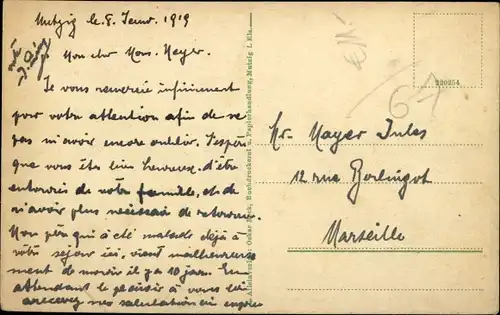 Mutzig le 8. Janv. 1919
Mon cher Mons. Mayer.
Je vous remercie infiniment
pour votre attention afin de ne
pas m'avoir encore oublié. J'espère
que vous êtes bien heureux d'être
entourés de votre famille, et de
n'avoir plus nécissaire de retourner.
Mon père qui a été malade déjà à
votre séjour ici, vient malheureuse
ment de mourir il y a 10 jours. En
attendant le plaisir à vous lire
recevez mes salutations
Oskar Beck, Buchdruckerei u. Papierhandlung, Mutzig i. Els.
220254
67
Mr. Mayer Jules
12 rue Barlingot
Marseille